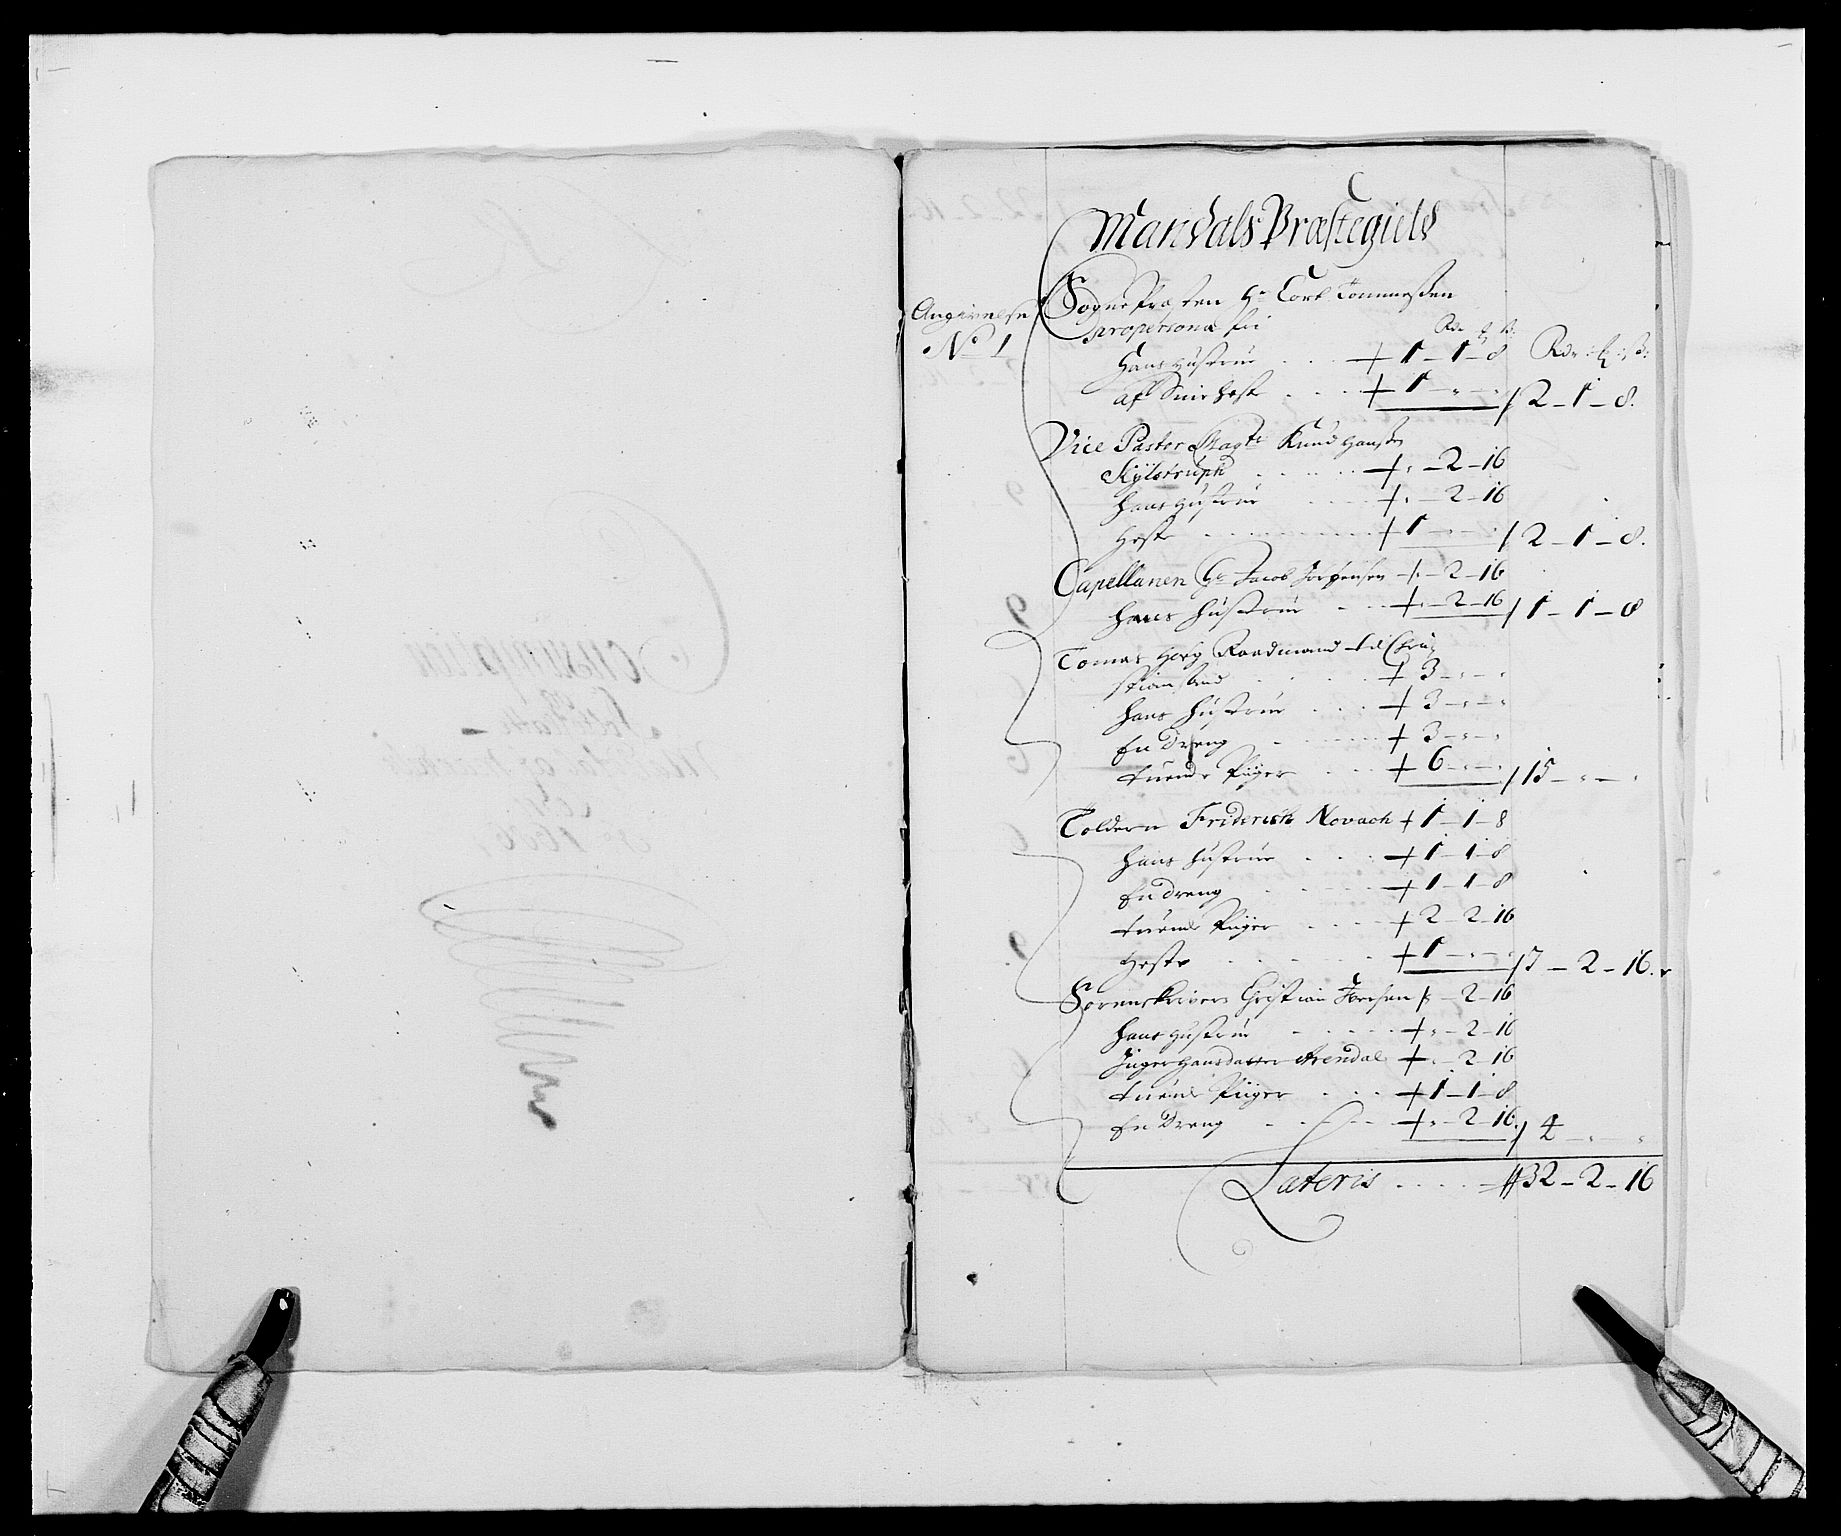 Mandals Præstegield
Angivelse
No 1
SognePræsten Hr Tort Tommeßen
propersona fri
Rdr ß
Hans Hustrue . . . + 1 - 1 - 8 Rdr : ß:
af Sine heste . . . + 1 - " - " / 2 - 1 - 8.
Vice Pastor Magtr Knud Hanßen
. . . + " - 2 - 16
hans Hustrue . . . + " - 2 - 16
Heste . . . + 1 - " - " / 2 - 1 - 8.
Capellanen Hr Jacob Jørgensen + " - 2 - 16
hans hustrue . . . + " - 2 - 16 / 1 - 1 - 8
Tomas Raadmand til Chri=
stiansand . . . + 3 - " - "
hans hustrue . . . + 3 - " - "
En Dreng . . . + 3 - " - "
tuende Piiger . . . + 6 - " - " / 15 - " - "
Tolderen Friderich Novach + 1 - 1 - 8
hans hustrue . . . + 1 - 1 - 8
En dreng . . . + 1 - 1 - 8
tuende Piiger . . . + 2 - 2 - 16
Heste . . . + 1 - " - " / 7 - 2 - 16.
Sorenskriver Christian + " - 2 - 16
hans Hustrue . . . + " - 2 - 16
Inger Hansdatter Arendal + " - 2 - 16
tuende Piiger . . . + 1 - 1 - 8
En Dreng . . . + " - 2 - 16. / 4 - " - "
Lateris . . . . 32 - 2 - 16